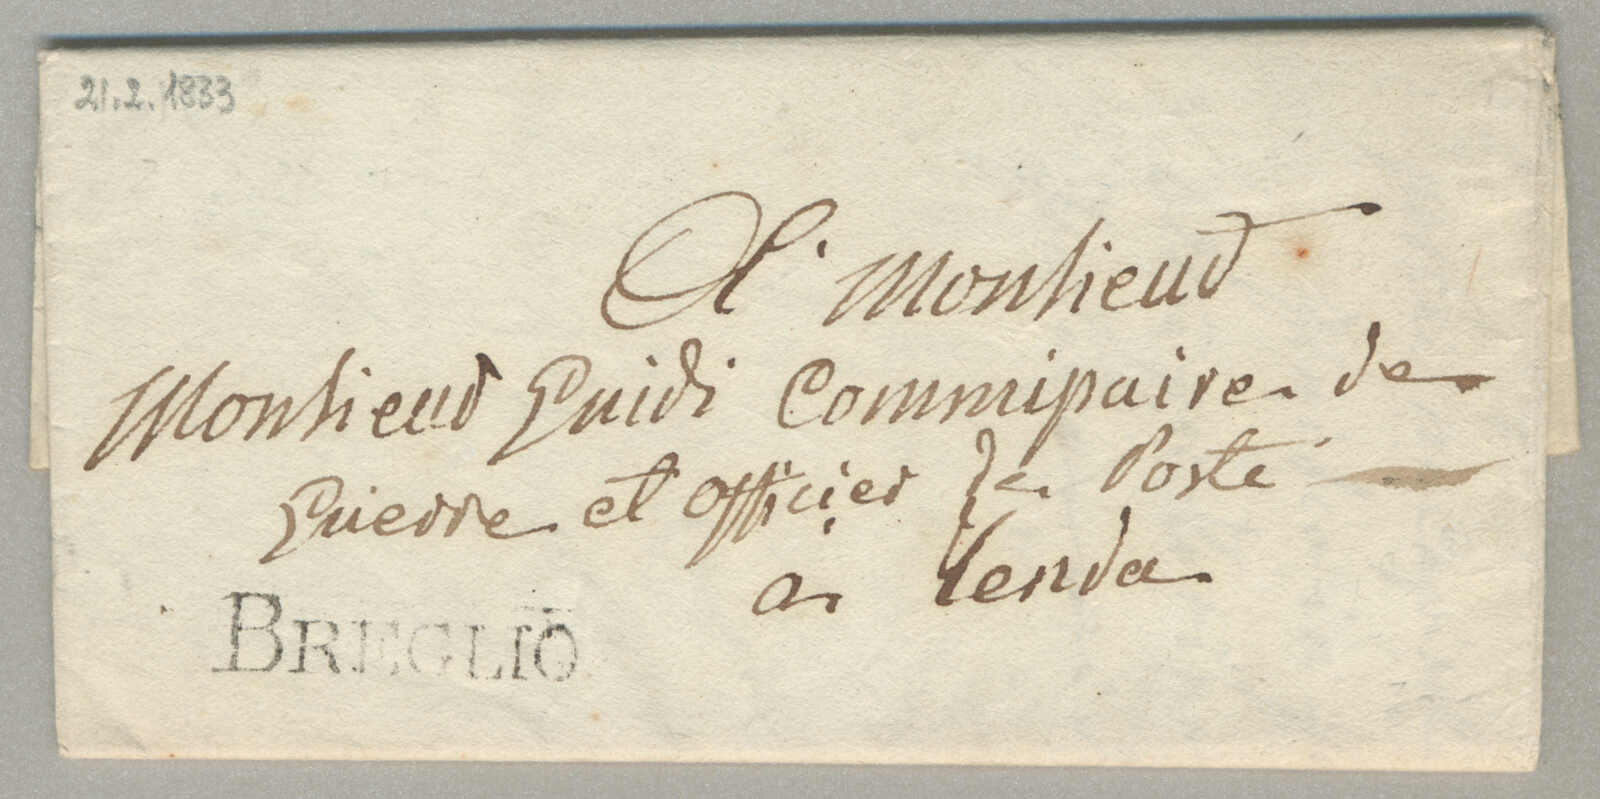 21.2.1833
A Monsieur
Monsieur Guidi Commissaire de
Guerre et Officier de Poste
a Tenda
BREGLIO